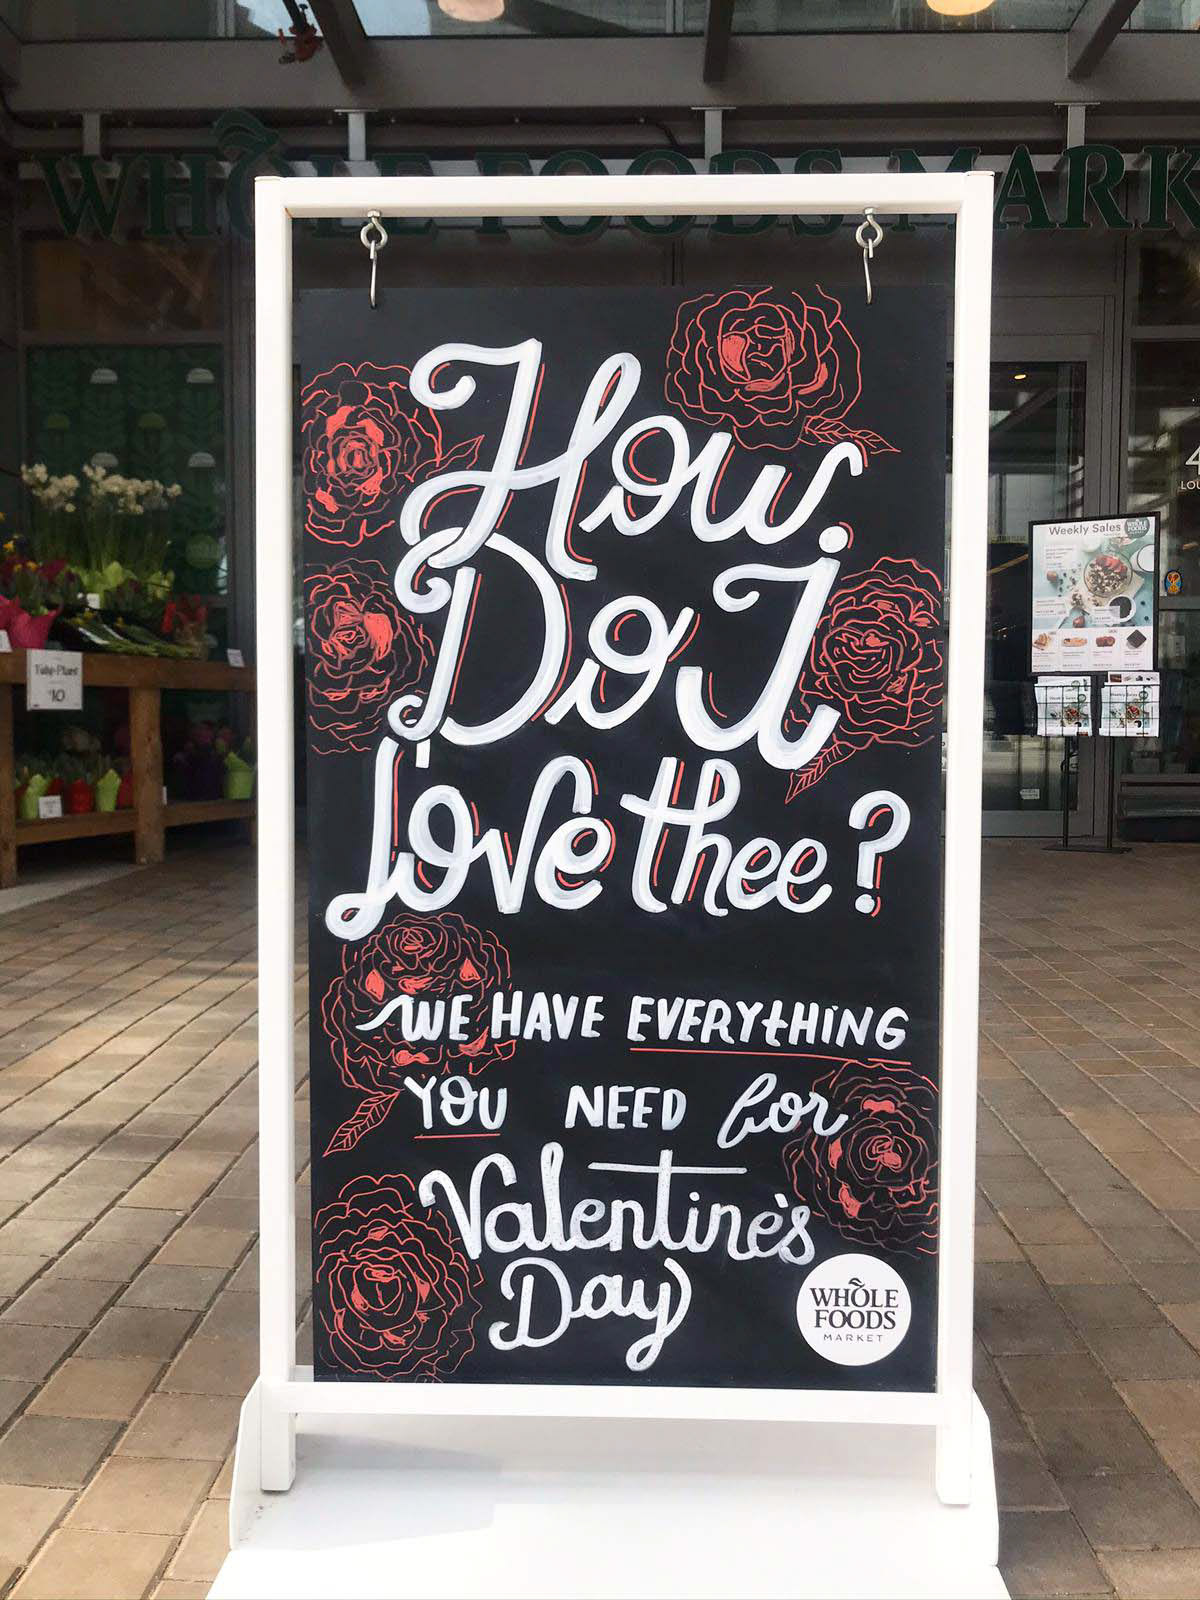 WHOLE FOODS MARK
How
Do I
Love thee?
WE HAVE EVERYTHING
YOU NEED for
Valentine's
Day
WHOLE
FOODS
MARKET
Weekly Sales
WHOLE
FOODS
$10
4
LOU